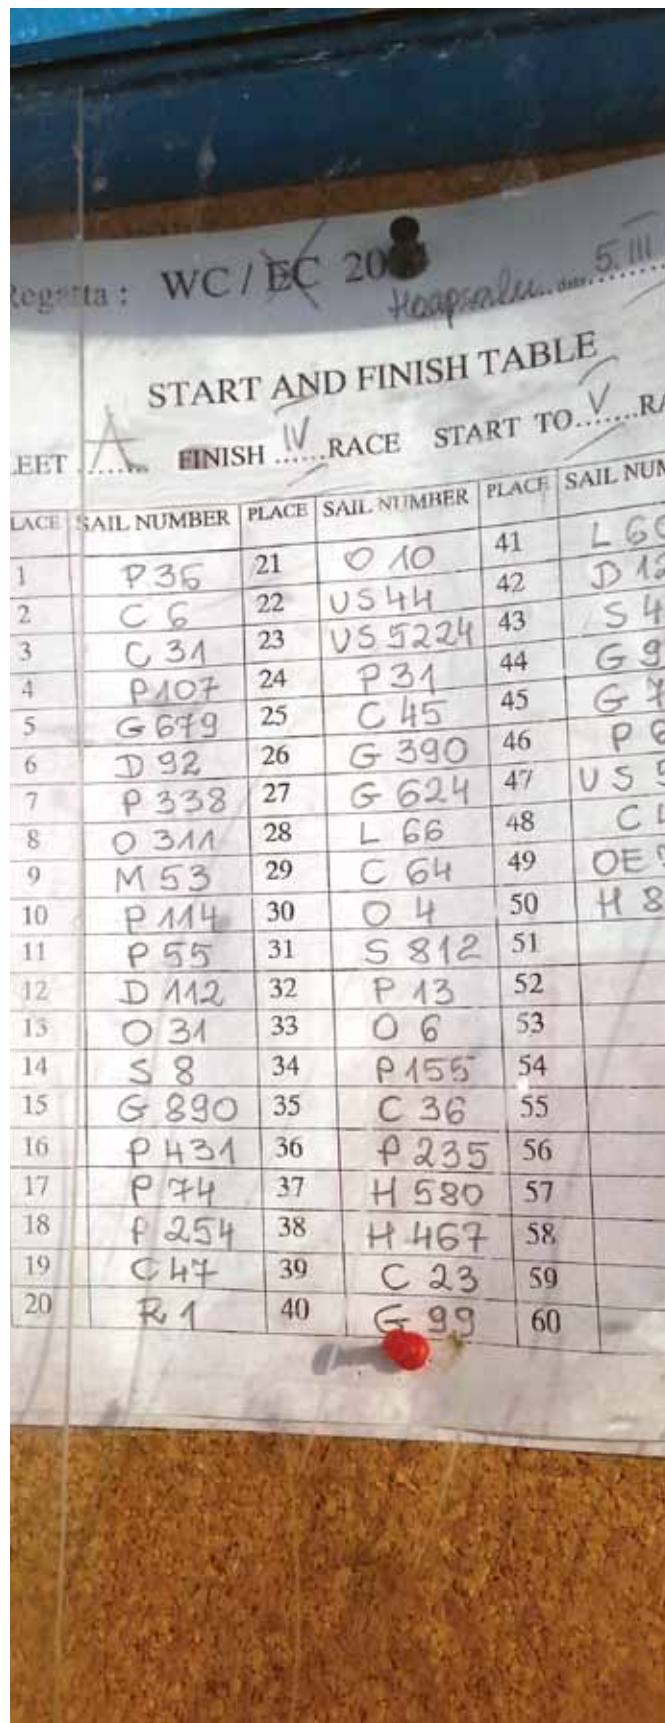 Regatta : WC / EC 20
Haapsalu.. date 5. III
START AND FINISH TABLE
LEET ..A..... FINISH ..IV..RACE START TO..V.....RA
LACE SAIL NUMBER PLACE SAIL NUMBER PLACE SAIL NUM
1 P 36 21 O 10 41 L 60
2 C 6 22 US 44 42 D 12
3 C 31 23 US 5224 43 S 4
4 P 107 24 P 31 44 G 9
5 G 679 25 C 45 45 G 7
6 D 92 26 G 390 46 P 6
7 P 338 27 G 624 47 US 5
8 O 311 28 L 66 48 C
9 M 53 29 C 64 49 OE
10 P 114 30 O 4 50 H 8
11 P 55 31 S 812 51
12 D 112 32 P 13 52
13 O 31 33 O 6 53
14 S 8 34 P 155 54
15 G 890 35 C 36 55
16 P 431 36 P 235 56
17 P 74 37 H 580 57
18 P 254 38 H 467 58
19 C 47 39 C 23 59
20 R 1 40 G 99 60